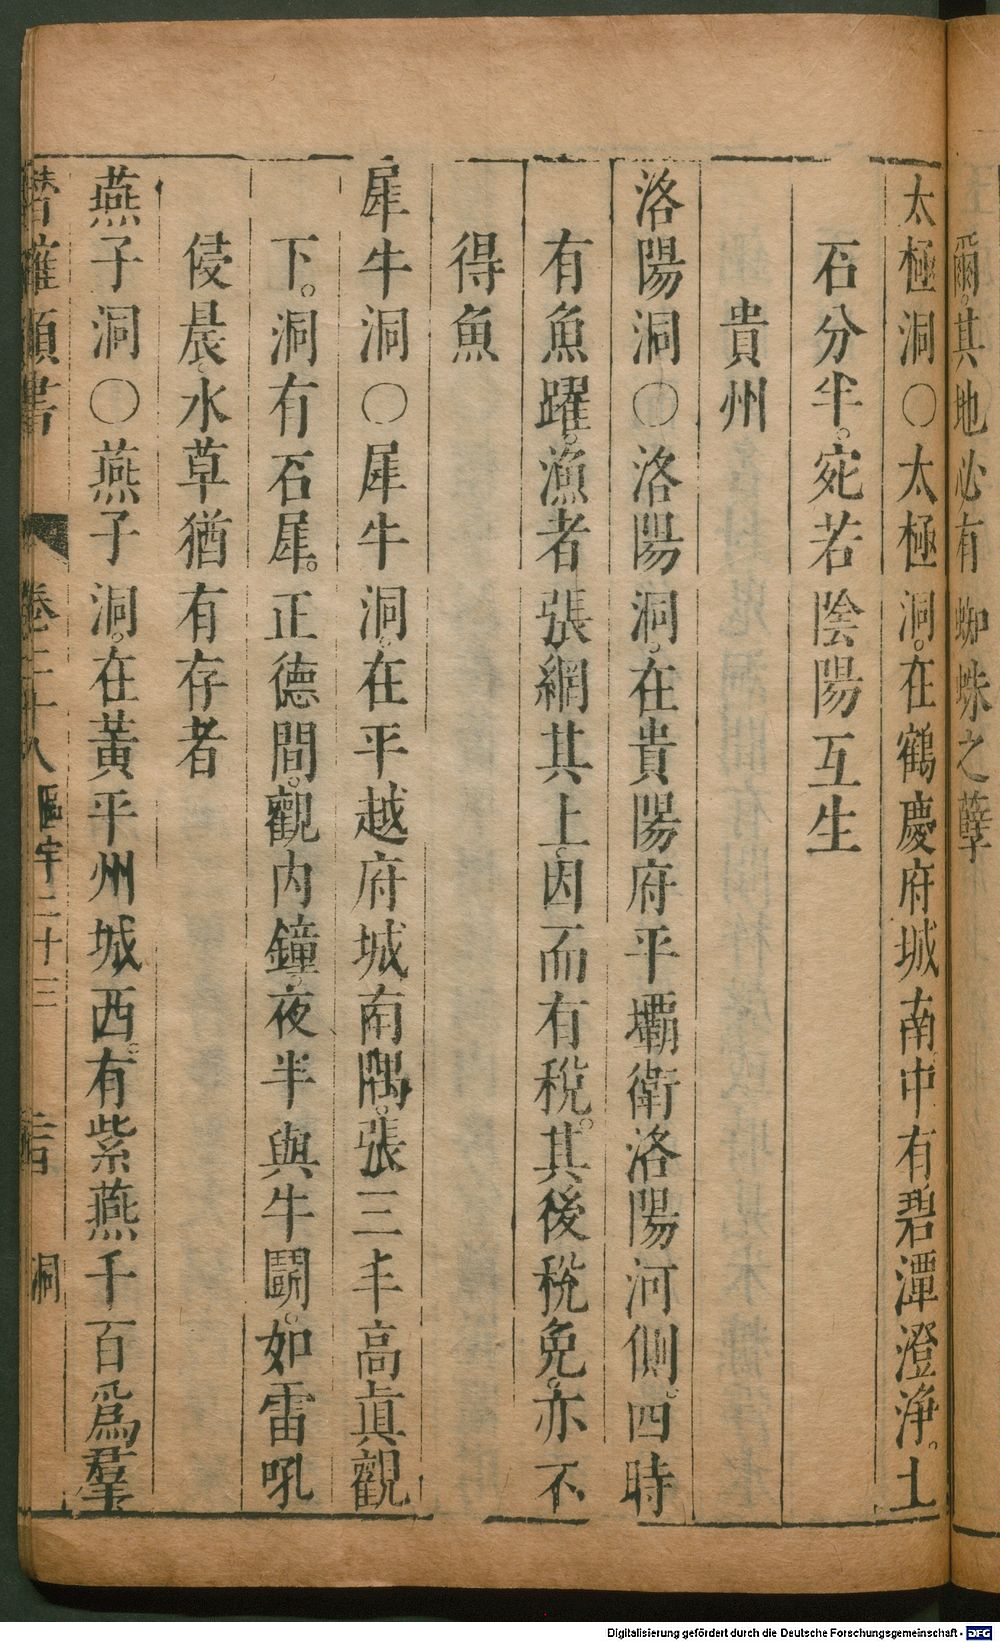 爾。其地必有蜘蛛之孽
太極洞○太極洞。在鶴慶府城南。中有碧潭澄淨。土
石分半。宛若陰陽互生
貴州
洛陽洞○洛陽洞。在貴陽府平壩衛洛陽河側。四時
有魚躍。漁者張網其上。因而有稅。其後稅免。亦不
得魚
犀牛洞○犀牛洞。在平越府城南隅。張三丰高真觀
下。洞有石犀。正德間。觀內鐘。夜半與牛鬪。如雷吼
侵晨。水草猶有存者
燕子洞○燕子洞。在黃平州城西。有紫燕千百爲羣
潛確類書 卷二十八 區宇二十三 洞
Digitalisierung gefördert durch die Deutsche Forschungsgemeinschaft - DFG